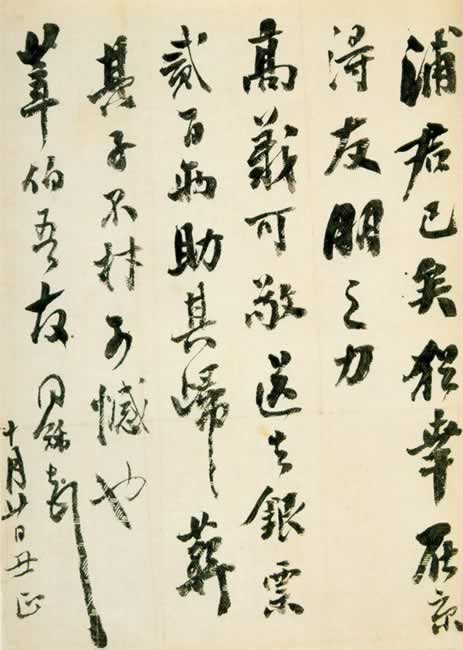 浦君已矣猶幸在京
得友朋之力
高義可敬送去銀票
貳百兩助其歸葬
其子不材可憾也
伯吾友 同龢頓
十月廿日丑正